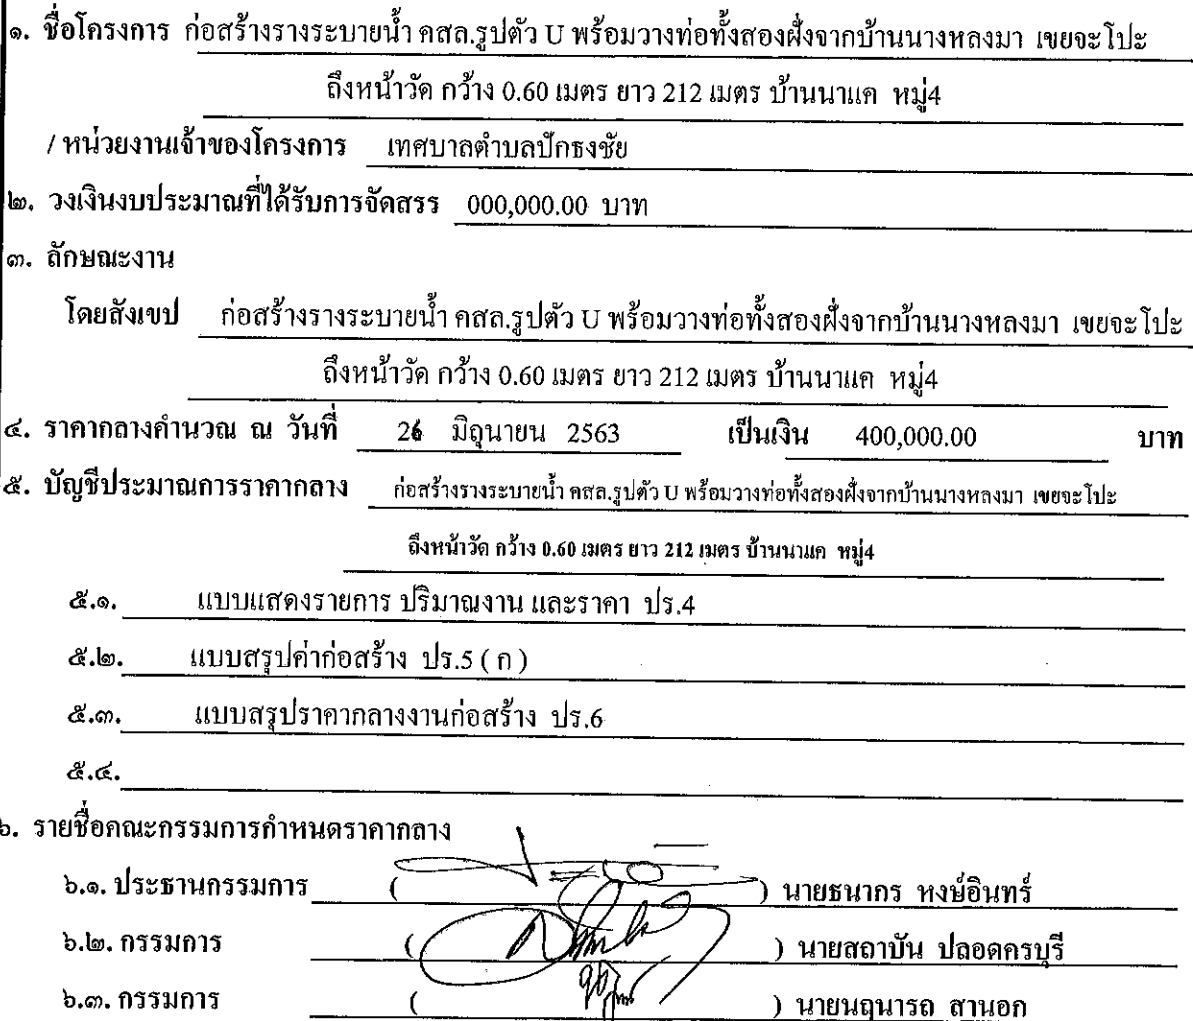 ๑. ชื่อโครงการ ก่อสร้างรางระบายน้ำ คสล.รูปตัว U พร้อมวางท่อทั้งสองฝั่งจากบ้านนางหลงมา เขยจะโปะ
ถึงหน้าวัด กว้าง 0.60 เมตร ยาว 212 เมตร บ้านนาแค หมู่4
/ หน่วยงานเจ้าของโครงการ เทศบาลตำบลปักธงชัย
๒. วงเงินงบประมาณที่ได้รับการจัดสรร 000,000.00 บาท
๓. ลักษณะงาน
โดยสังเขป ก่อสร้างรางระบายน้ำ คสล.รูปตัว U พร้อมวางท่อทั้งสองฝั่งจากบ้านนางหลงมา เขยจะโปะ
ถึงหน้าวัด กว้าง 0.60 เมตร ยาว 212 เมตร บ้านนาแค หมู่4
๔. ราคากลางคำนวณ ณ วันที่ 26 มิถุนายน 2563 เป็นเงิน 400,000.00 บาท
๕. บัญชีประมาณการราคากลาง ก่อสร้างรางระบายน้ำ คสล.รูปตัว U พร้อมวางท่อทั้งสองฝั่งจากบ้านนางหลงมา เขยจะโปะ
ถึงหน้าวัด กว้าง 0.60 เมตร ยาว 212 เมตร บ้านนาแค หมู่4
๕.๑. แบบแสดงรายการ ปริมาณงาน และราคา ปร.4
๕.๒. แบบสรุปค่าก่อสร้าง ปร.5 ( ก )
๕.๓. แบบสรุปราคากลางงานก่อสร้าง ปร.6
๕.๔.
๖. รายชื่อคณะกรรมการกำหนดราคากลาง
๖.๑. ประธานกรรมการ ( ) นายธนากร หงษ์อินทร์
๖.๒. กรรมการ ( ) นายสถาบัน ปลอดครบุรี
๖.๓. กรรมการ ( ) นายนฤนารถ สานอก